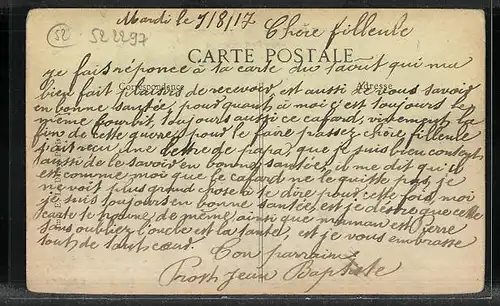 Mardi le 7/8/17
52 522297
Chère filleule
CARTE POSTALE
Correspondance Adresse
je fais réponce à ta carte du 1 aout qui ma
bien fait plaisir de recevoir, est aussi de vous savoir
en bonne santée, pour quant à moi c'est toujours le
même fourbit, toujours aussi ce cafard, vivement la
fin de cette guerre, pour le faire passez, chère filleule
j'ait reçu une lettre de papa, que je suis bien content
aussi de le savoir en bonne santée, il me dit qu'il
est comme moi que le cafard ne le quitte pas, je
ne voit plus grand chose à te dire pour cette fois, moi
je suis toujours en bonne santée, est je désire que cette
carte te trouve de même, ainsi que maman est
sans oubliez l'oncle est la tante, est je vous embrasse
tout de tout cœur.
Ton parrain
Prost Jean Baptiste